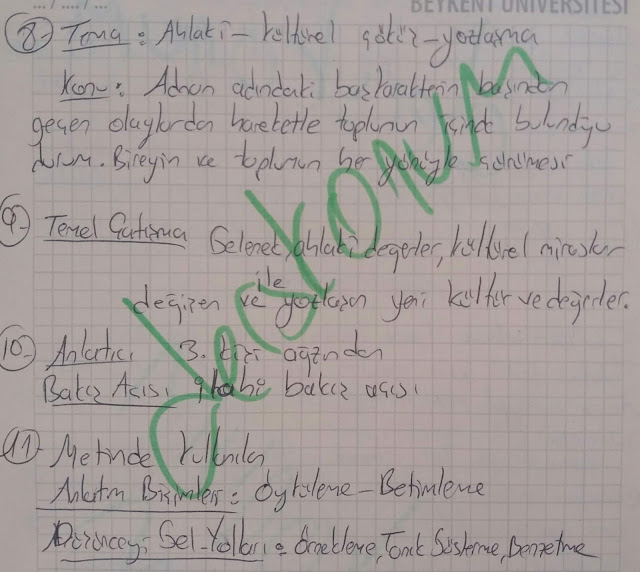 .... / .... / ....
BEYKENT ÜNİVERSİTESİ
8- Tema : Ahlaki - kültürel çöküş - yozlaşma
Konu : Adnan adındaki başkarakterin başından
geçen olaylardan hareketle toplumun içinde bulunduğu
durum. Bireyin ve toplumun her yönüyle
9- Temel Çatışma Gelenek, ahlaki değerler, kültürel miraslar
ile
değişen ve yozlaşan yeni kültür ve değerler.
10- Anlatıcı 3. kişi ağzından
Bakış Açısı ilahi bakış açısı
11- Metinde kullanılan
Anlatım Biçimleri : Öyküleme - Betimleme
Düşünceyi Gel. Yolları : Örnekleme, Tanık Gösterme, Benzetme
derskonum